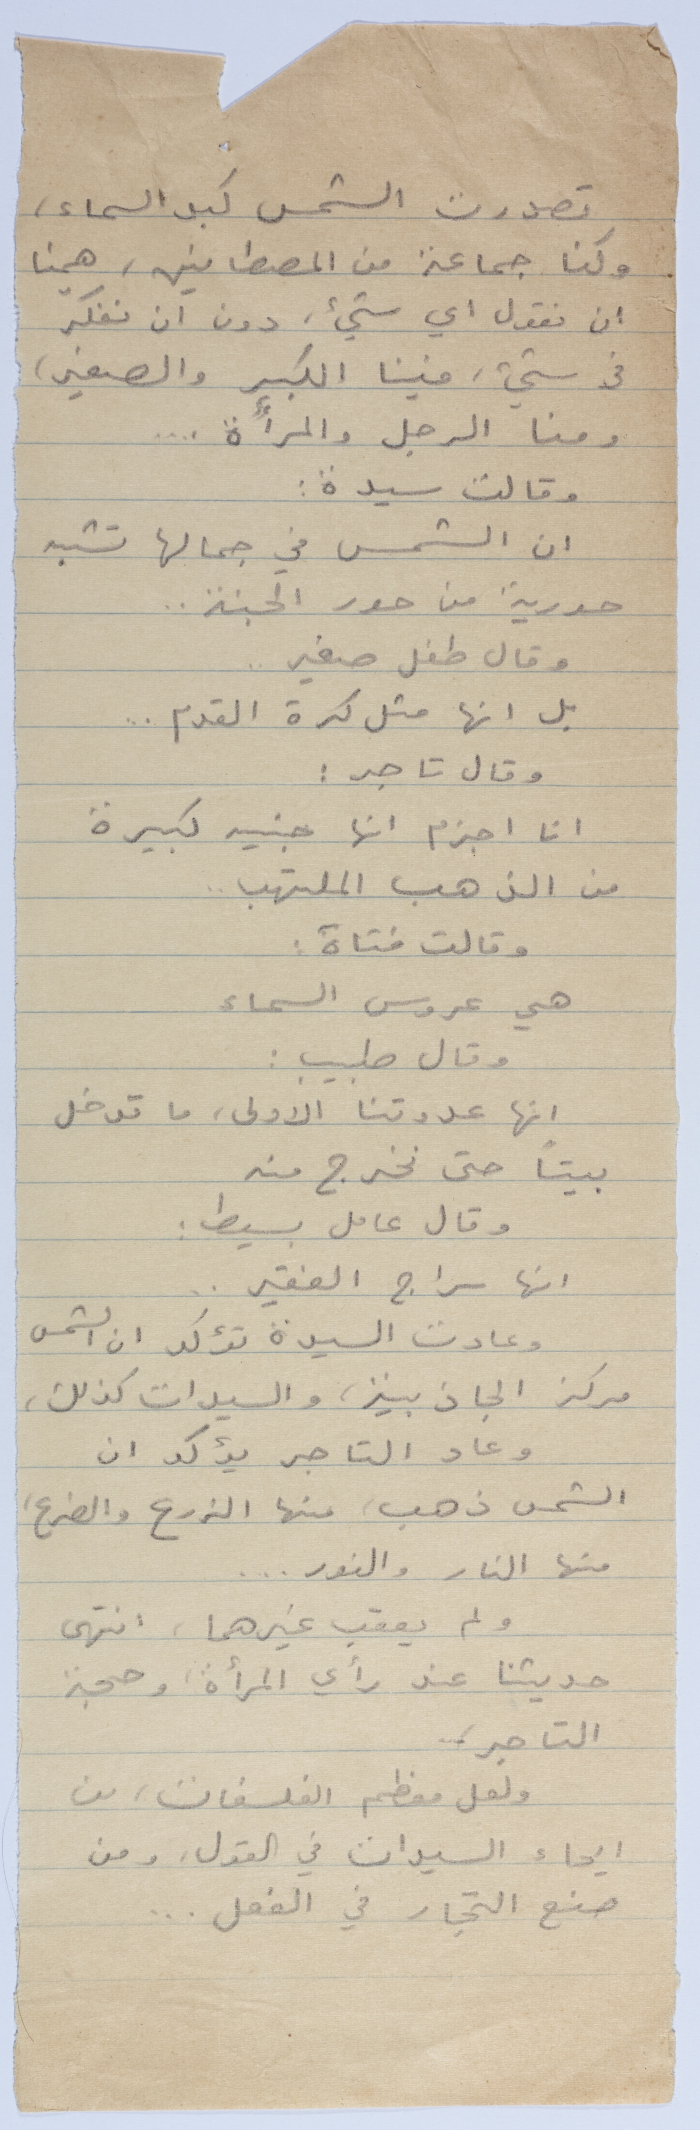 تصدرت الشمس كبد السماء،
وكنا جماعة من المصطافين، همنا
ان نقول اي شيء، دون ان نفكر
في شيء، فينا الكبير والصغير،
ومنا الرجل والمرأة ....
وقالت سيدة :
ان الشمس في جمالها تشبه
حورية من حور الجنة ..
وقال طفل صغير ..
بل انها مثل كرة القدم ...
وقال تاجر :
انا اجزم انها جنيه كبيرة
من الذهب الملتهب ..
وقالت فتاة :
هي عروس السماء
وقال طبيب :
انها عدوتنا الاولى، ما تدخل
بيتاً حتى نخرج منه
وقال عامل بسيط :
انها سراج الفقير ..
وعادت السيدة تؤكد ان الشمس
مركز الجاذبية، والسيدات كذلك،
وعاد التاجر يؤكد ان
الشمس ذهب، منها الزرع والضرع،
منها النار والنور ...
ولم يعقب غيرهما، انتهى
حديثنا عند رأي المرأة، وحجة
التاجر ..
ولعل معظم الفلسفات، من
ايحاء السيدات في القول، ومن
صنع التجار في الفعل ...